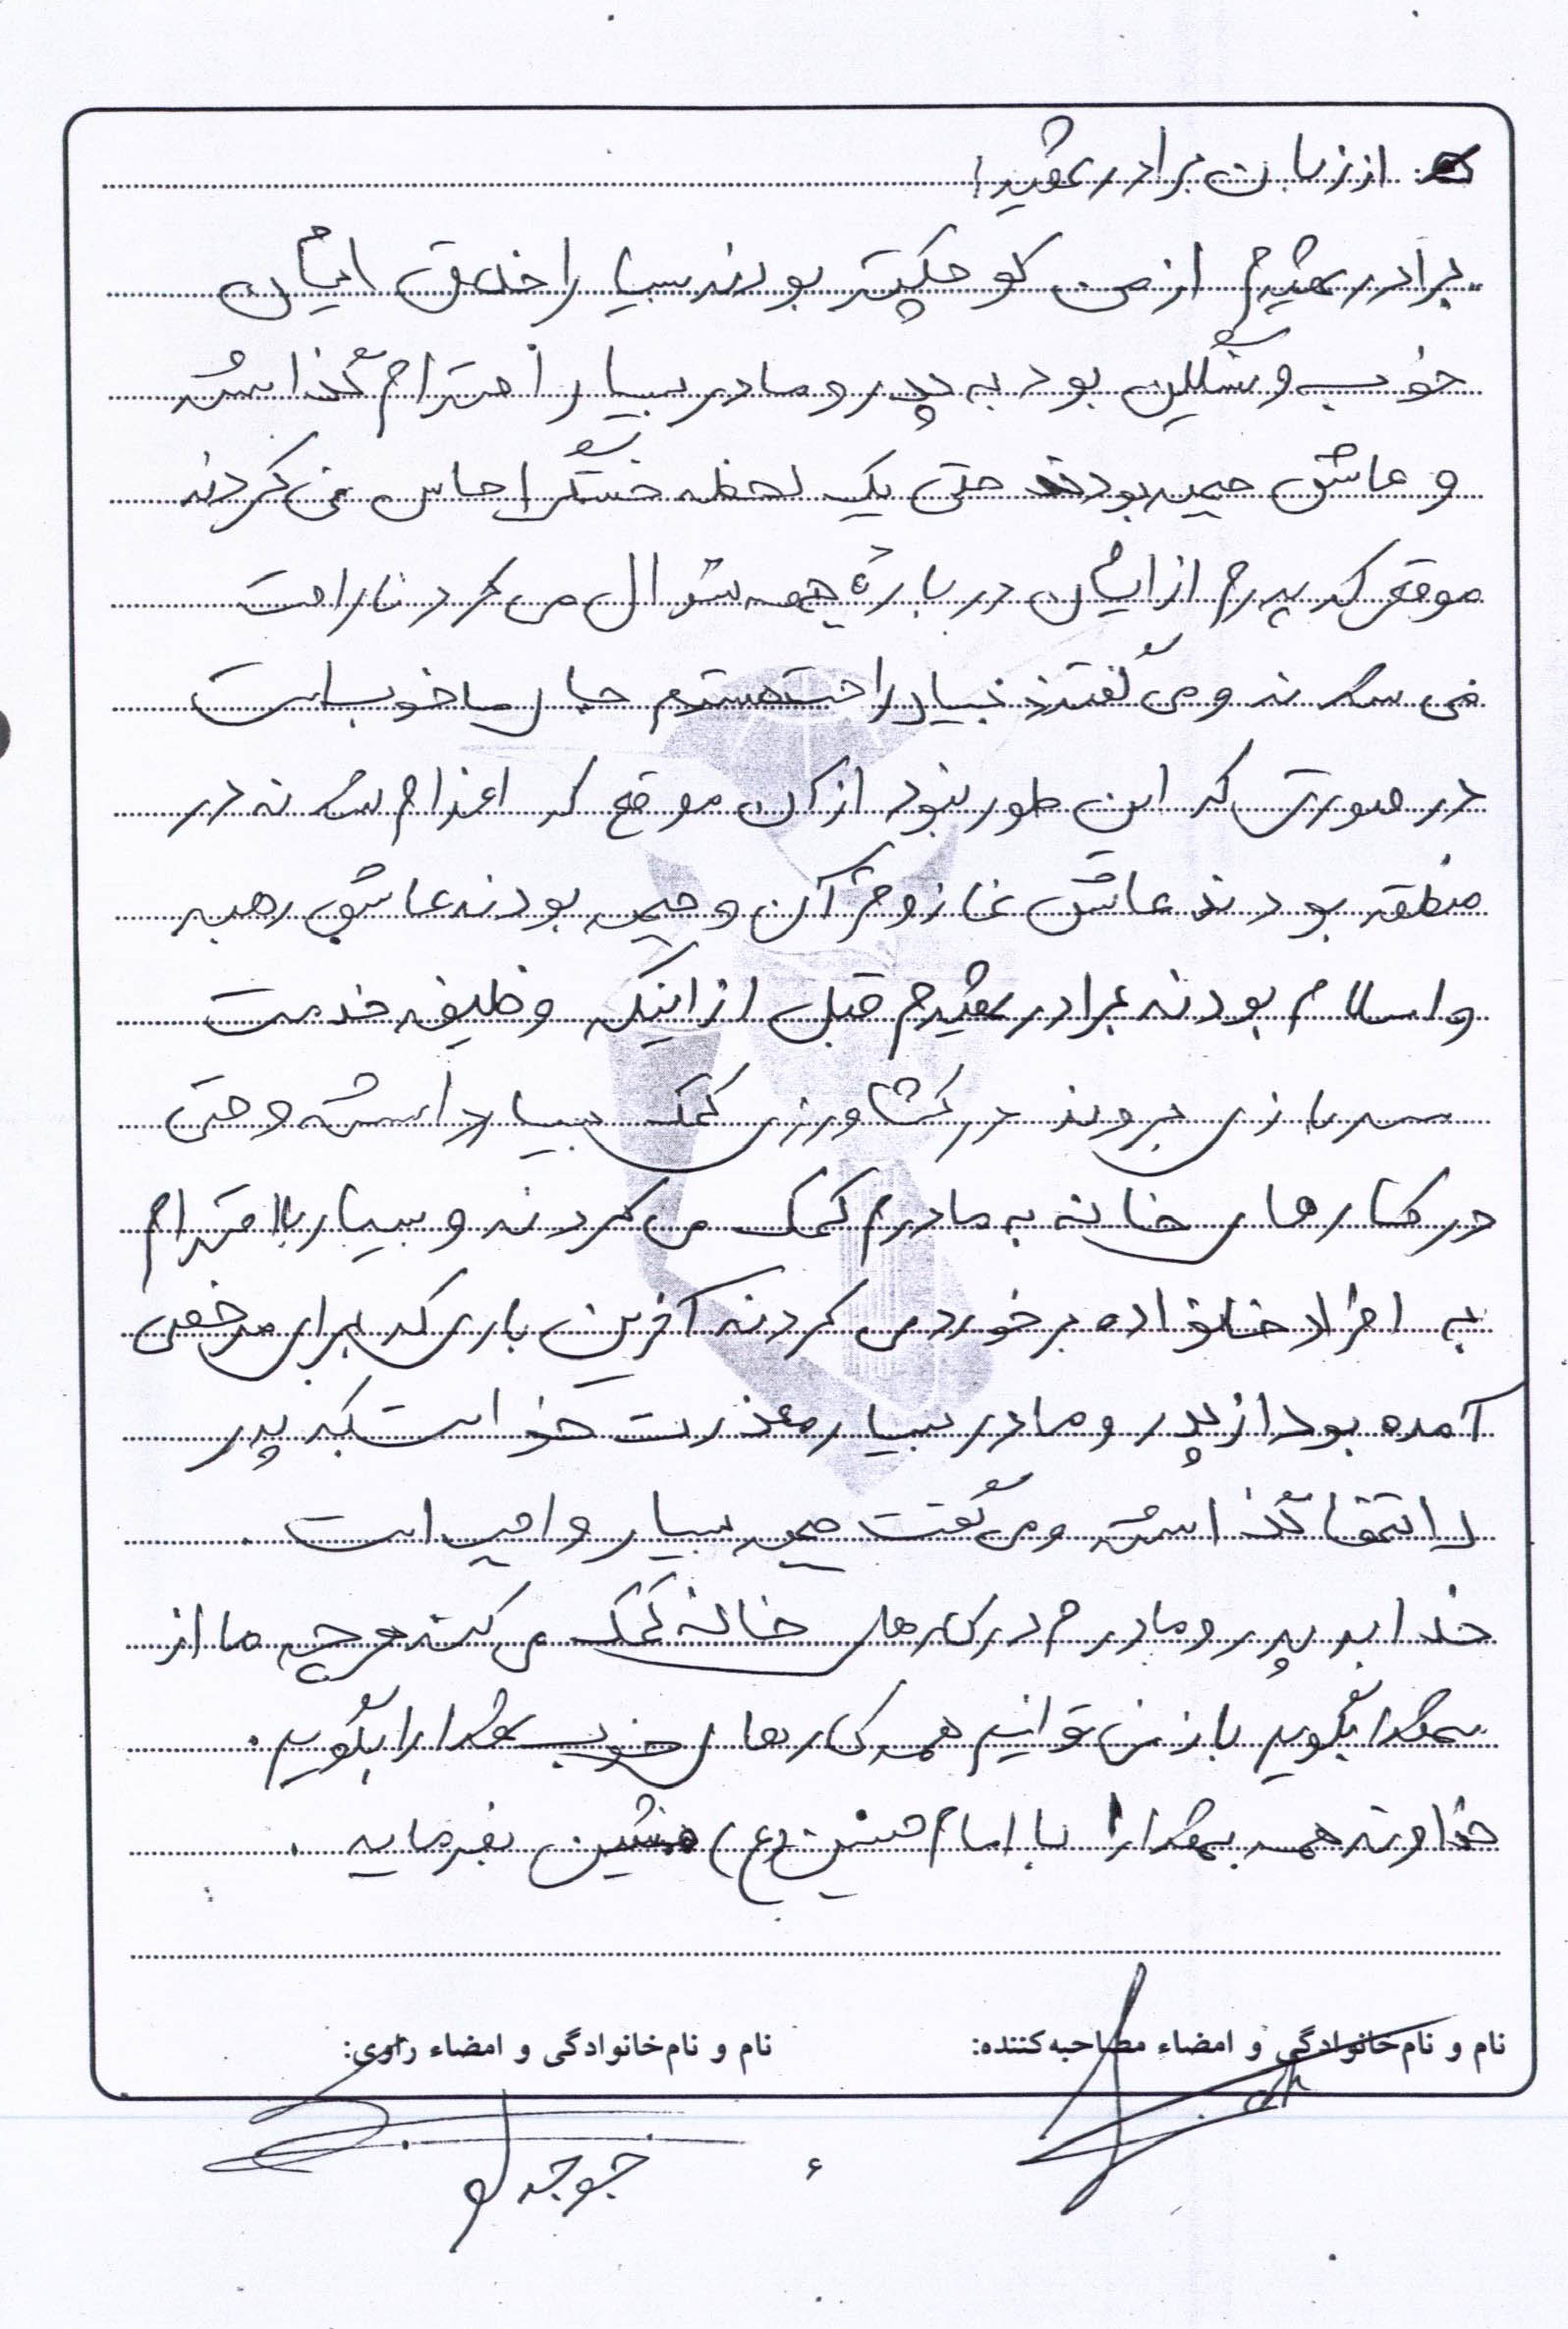 از زبان برادر شهید:
برادر شهیدم از من کوچکتر بودند بسیار اخلاق ایشان
خوب و سنگین بود به پدر و مادر بسیار احترام گذاشته
و عاشق جبهه بودند حتی یک لحظه خستگی احساس نمی کردند
موقعی که پدرم از ایشان درباره جبهه سئوال می کرد ناراحت
نمی شدند و می گفتند بسیار راحت هستیم جا ما خوب است
در صورتی که این طور نبود از آن موقع که اعزام شدند در
منطقه بودند عاشق نماز و قرآن و جبهه بودند عاشق رهبر
و اسلام بودند برادر شهیدم قبل از اینکه وظیفه خدمت
سربازی بروند در کشاورزی کمک بسیار داشته و حتی
در کارهای خانه به مادرم کمک می کردند و بسیار با احترام
به افراد خانواده برخورد می کردند آخرین باری که برای مرخصی
آمده بود از پدر و مادر بسیار معذرت خواست که پدر
را تنها گذاشته و می گفت جبهه بسیار واجب است.
خدا به پدر و مادرم در کارهای خانه کمک می کند هرچه ما از
شهدا بگوییم باز نمی توانیم همه کارهای خوب شهدا را بگوییم.
خداوند همه شهدا را با امام حسین (ع) همنشین بفرماید.
نام و نام‌خانوادگی و امضاء مصاحبه‌کننده:
نام و نام‌خانوادگی و امضاء راوی:
خوجه لو
۶